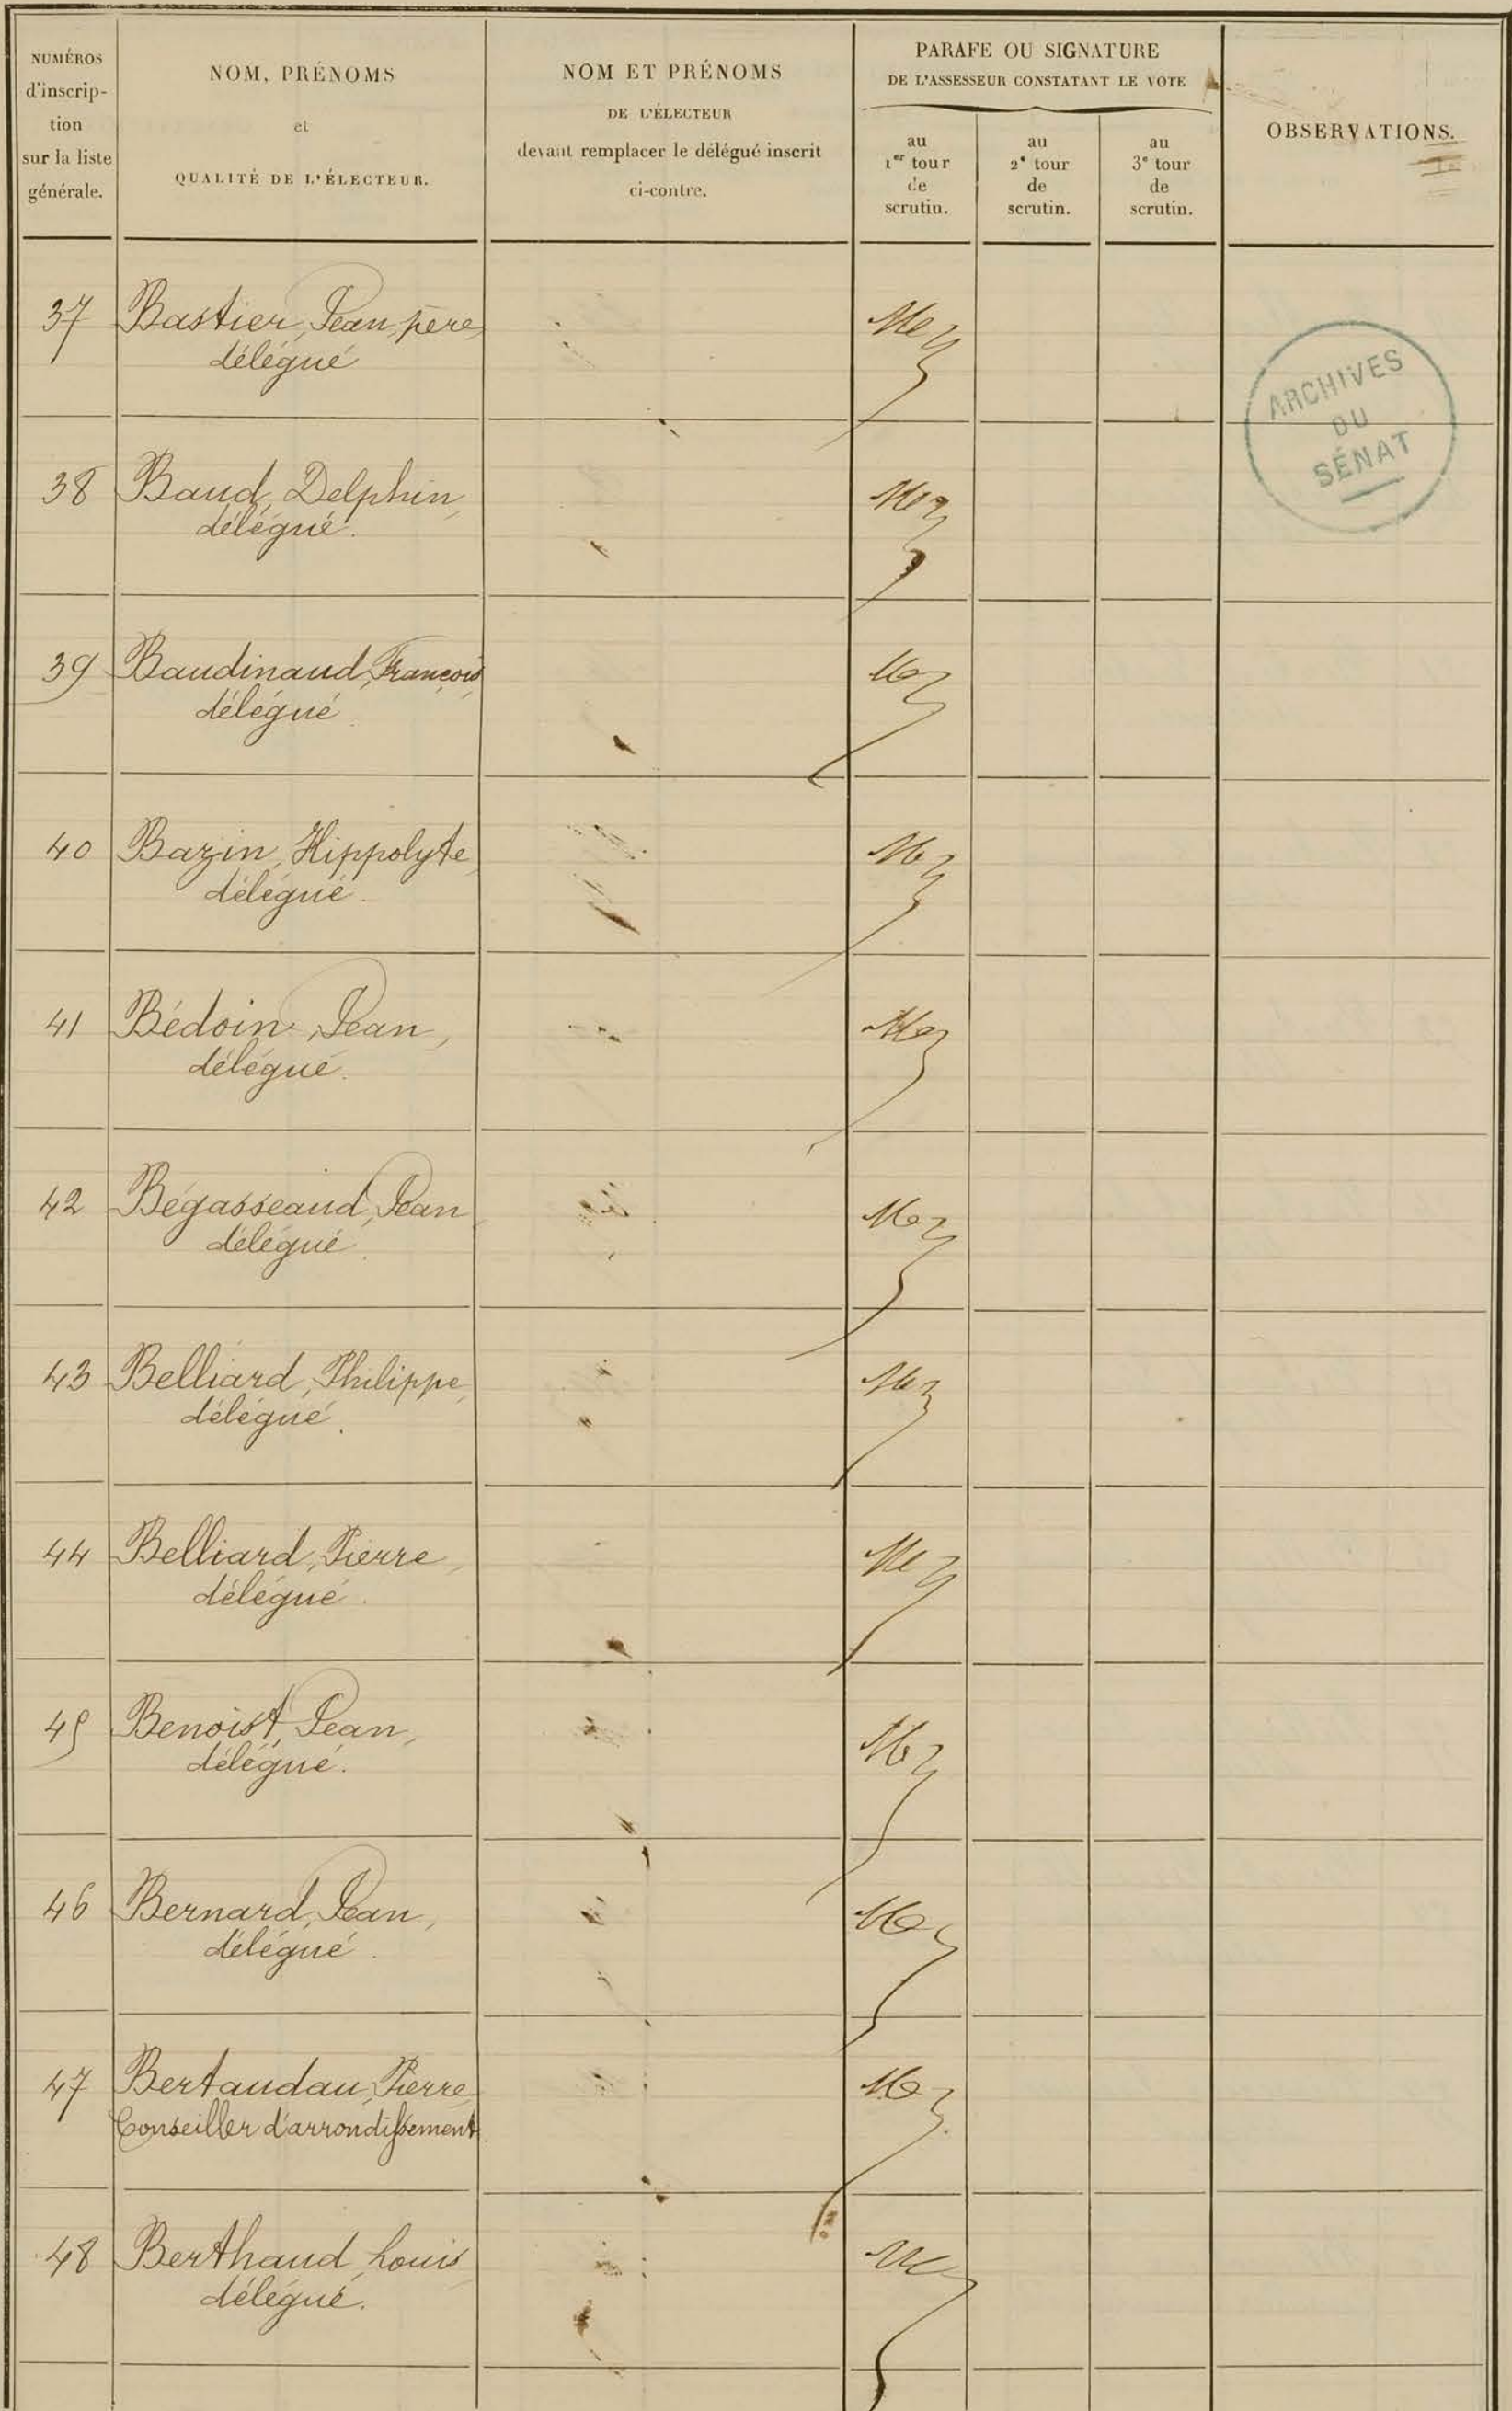 NUMÉROS
d'inscrip-
tion
sur la liste
générale.
NOM, PRÉNOMS
et
QUALITÉ DE L'ÉLECTEUR.
NOM ET PRÉNOMS
DE L'ÉLECTEUR
devant remplacer le délégué inscrit
ci-contre.
PARAFE OU SIGNATURE
DE L'ASSESSEUR CONSTATANT LE VOTE
au
1er tour
de
scrutin.
au
2e tour
de
scrutin.
au
3e tour
de
scrutin.
OBSERVATIONS.
37 Bastier, Jean, père,
délégué
ARCHIVES
DU
SÉNAT
38 Baud, Delphin,
délégué.
39 Baudinaud, François,
délégué.
40 Bazin, Hippolyte,
délégué.
41 Bédoin, Jean,
délégué.
42 Bégasseaud, Jean,
délégué.
43 Belliard, Philippe,
délégué.
44 Belliard, Pierre,
délégué.
45 Benoist, Jean,
délégué.
46 Bernard, Jean,
délégué.
47 Bertaudau, Pierre,
Conseiller d'arrondissement.
48 Berthaud, Louis,
délégué.